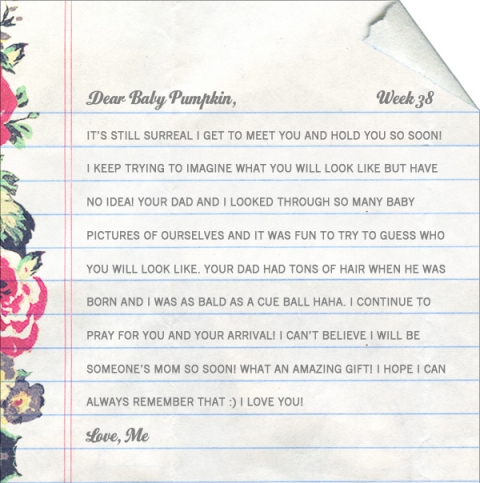 Dear Baby Pumpkin, Week 38
IT'S STILL SURREAL I GET TO MEET YOU AND HOLD YOU SO SOON!
I KEEP TRYING TO IMAGINE WHAT YOU WILL LOOK LIKE BUT HAVE
NO IDEA! YOUR DAD AND I LOOKED THROUGH SO MANY BABY
PICTURES OF OURSELVES AND IT WAS FUN TO TRY TO GUESS WHO
YOU WILL LOOK LIKE. YOUR DAD HAD TONS OF HAIR WHEN HE WAS
BORN AND I WAS AS BALD AS A CUE BALL HAHA. I CONTINUE TO
PRAY FOR YOU AND YOUR ARRIVAL! I CAN'T BELIEVE I WILL BE
SOMEONE'S MOM SO SOON! WHAT AN AMAZING GIFT! I HOPE I CAN
ALWAYS REMEMBER THAT :) I LOVE YOU!
Love, Me